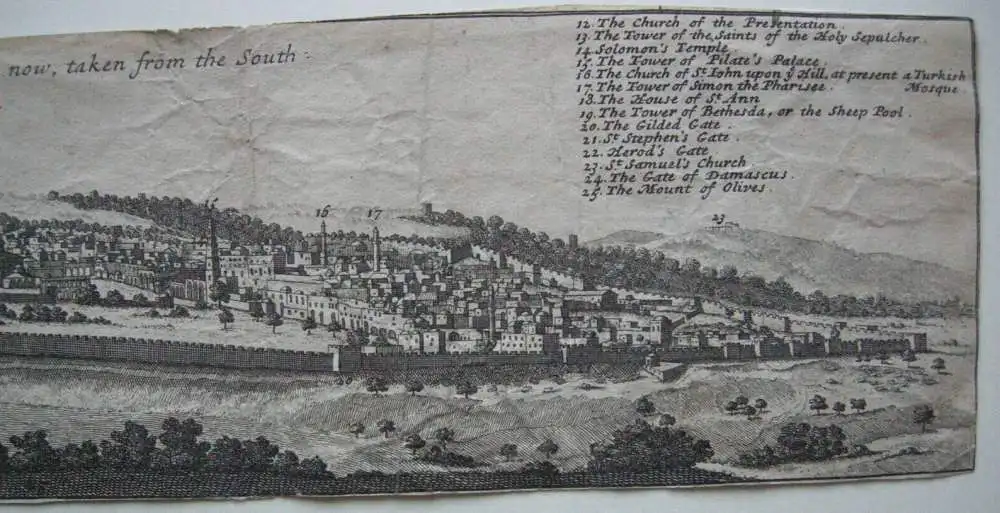 now, taken from the South:
12. The Church of the Presentation.
13. The Tower of the Saints of the Holy Sepulcher.
14. Solomon's Temple.
15. The Tower of Pilate's Palace.
16. The Church of St. Iohn upon ye Hill, at present a Turkish
Mosque
17. The Tower of Simon the Pharisee.
18. The House of St. Ann
19. The Tower of Bethesda, or the Sheep Pool.
20. The Gilded Gate.
21. St. Stephen's Gate.
22. Herod's Gate
23. St. Samuel's Church.
24. The Gate of Damascus.
25. The Mount of Olives.
16
17
23